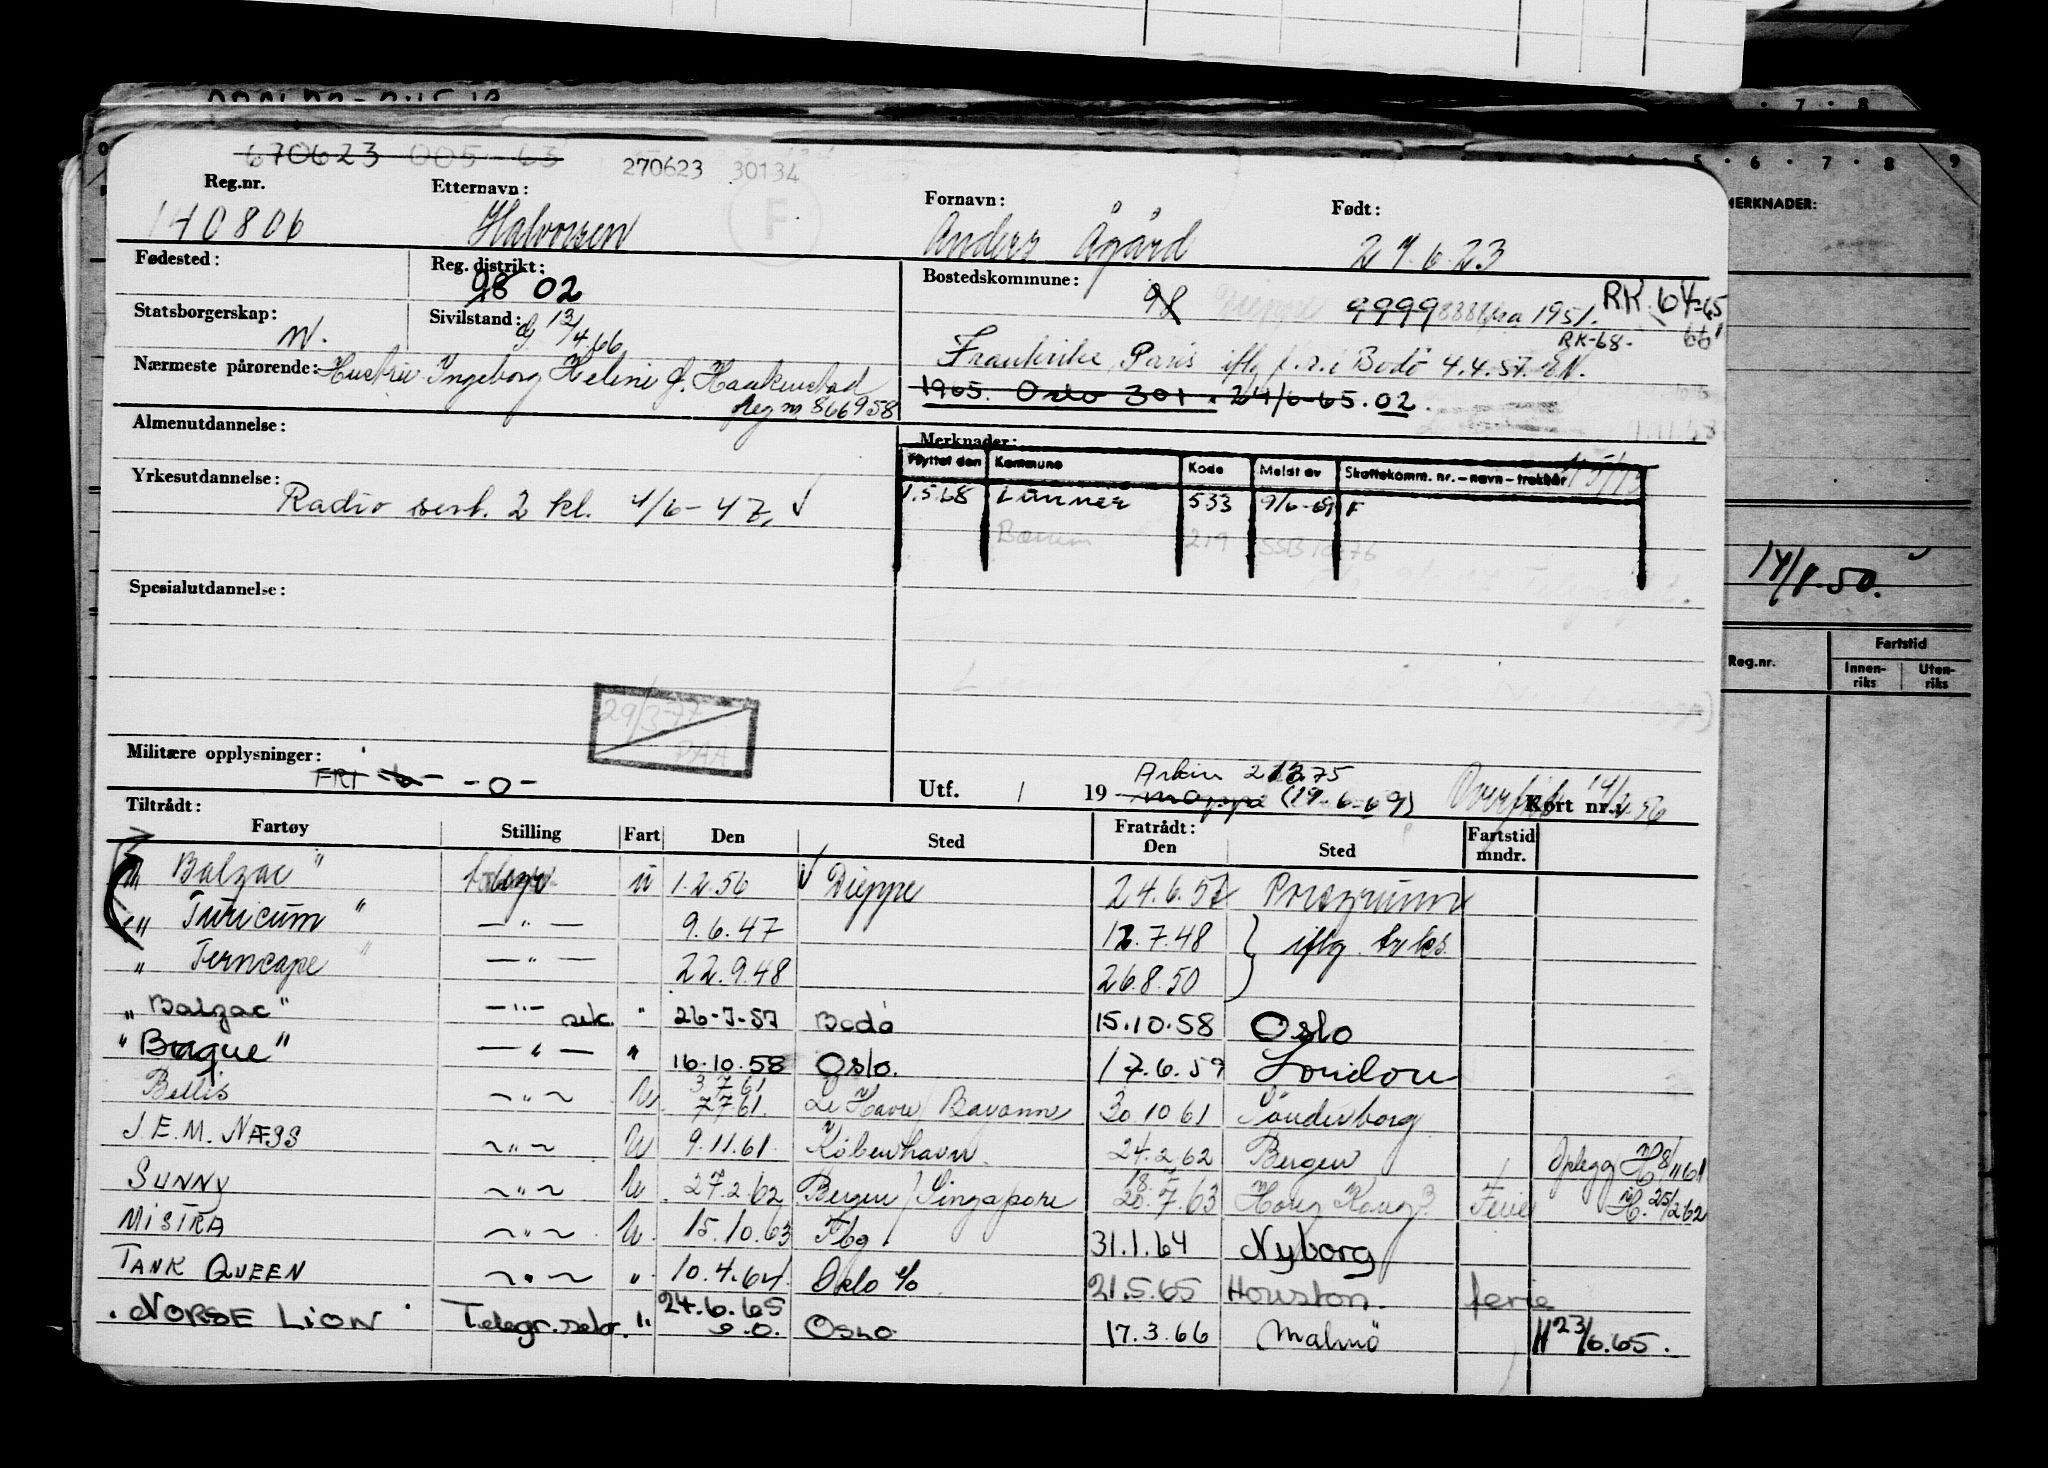 670623 005-63 270623 30134
Reg.nr. Etternavn: Fornavn: Født:
140806 Halvorsen Anders Ågård 27.6.23
F
Fødested: Reg. distrikt: Bostedskommune:
98 02
98 Dieppe 9999 8886 fra 1951. RK. 64-65
66
Statsborgerskap: Sivilstand:
N. g. 13/4.66
RK-68-
Frankrike, Paris iflg f.r.i Bodö 4.4.57.
Nærmeste pårørende: Hustru Ingeborg Helene f. Haakenstad
Reg nr 866958
1965. Oslo 301. 24/6-65. 02.
Almenutdannelse: Merknader:
Flyttet den Kommune Kode Meldt av Skattekomm. nr. - navn - trekkår
Yrkesutdannelse:
Radio sert. 2 kl. 4/6-47.
1.5.68 Lunner 533 9/6-69 F
Bærum 219 SSB 10 76
Spesialutdannelse:
29/3-77
PAA
Militære opplysninger:
FRI -o-
Utf. / 19 Kort nr.
Arkiv 2 12.75
Mappe (19-6-69)
Tiltrådt: Fratrådt:
Fartøy Stilling Fart Den Sted Den Sted Fartstid mndr.
" Balzac " telegr. u 1.2.56 Dieppe 24.6.57 Porsgrunn
" Turicum " —"— 9.6.47 12.7.48 } iflg.
" Ferncape " —"— 22.9.48 26.8.50
" Balzac" —"— sek. " 26-7-57 Bodø 15.10.58 Oslo
" Braque" —"— " 16.10.58 Oslo. 17.6.59 London
Bellis —"— U 3 7 61
7 7 61. Le Havre / Bayonne 30 10 61 Sönderborg
J.E.M. NÆSS —"— U 9.11.61. København. 24.2.62 Bergen Oplegg H 8/11 61
SUNNY —"— U 27.2.62 Bergen / Singapore 18.
20.7.63 Hong Kong? Ferie H. 25/2 62
MISTRA —"— U 15.10.63 Fbg 31.1.64 Nyborg
TANK QUEEN —"— " 10.4.64. Oslo o/o 21.5.65 Houston. ferie
. NORSE LION . Telegr.sekr. " 24.6.65
o.o. Oslo 17.3.66 Malmö H 23/6.65.
MERKNADER:
14/8.50.
Reg.nr. Fartstid
Innen-riks Uten-riks